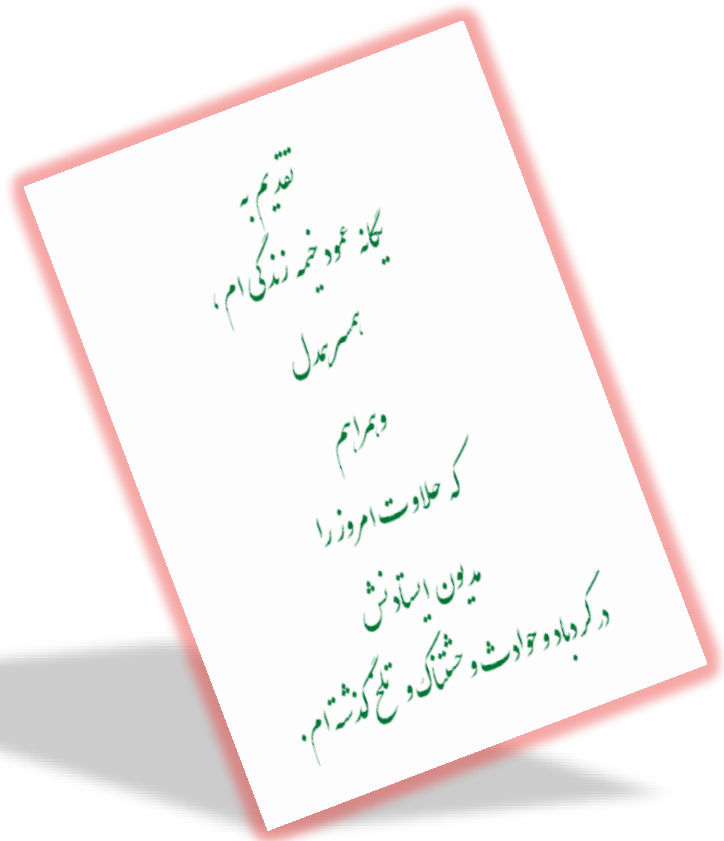 تقدیم به
یگانه عمود خیمه زندگی ام ،
همسر همدل
و همراهم
که حلاوت امروز را
مدیون ایستادنش
در گردباد و حوادث و خشتناک و تلخ گذشته ام.